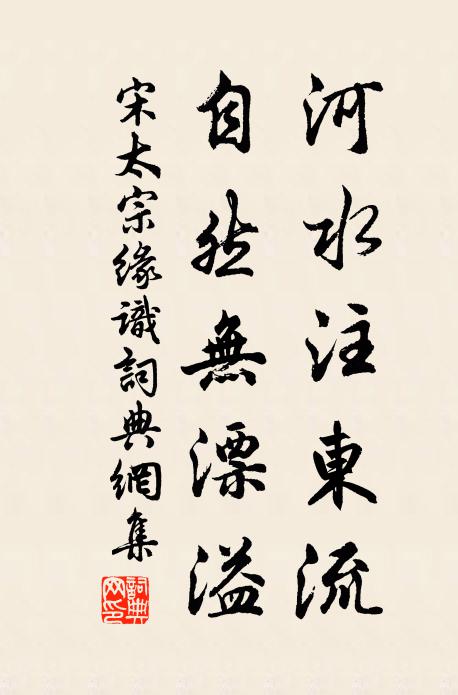 河水注東流
自然無漂溢
宋太宗緣識詞典網集
詞典網印